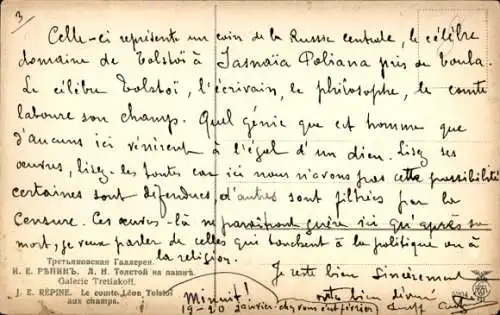 3
Celle-ci représente un coin de la Russie centrale, le célèbre
domaine de Tolstoï à Iasnaïa Poliana près de Toula.
Le célèbre Tolstoï, l'écrivain, le philosophe, le comte
laboure son champs. Quel génie que cet homme que
d'aucuns ici vénèrent à l'égal d'un dieu. Lisez ses
œuvres, lisez-les toutes car ici nous n'avons pas cette possibilité
certaines sont défendues, d'autres sont filtrées par la
censure. Ces œuvres-là ne paraîtront guère ici qu'après sa
mort, je veux parler de celles qui touchent à la politique ou à
la religion.
Третьяковская Галлерея.
И. Е. РѢПИНЪ. Л. Н. Толстой на пашнѣ.
Galerie Tretiakoff.
J. E. RÉPINE. Le comte Léon Tolstoï
aux champs.
Je reste bien sincèrement
votre bien dévoué
Minuit!
19-20 janvier
février